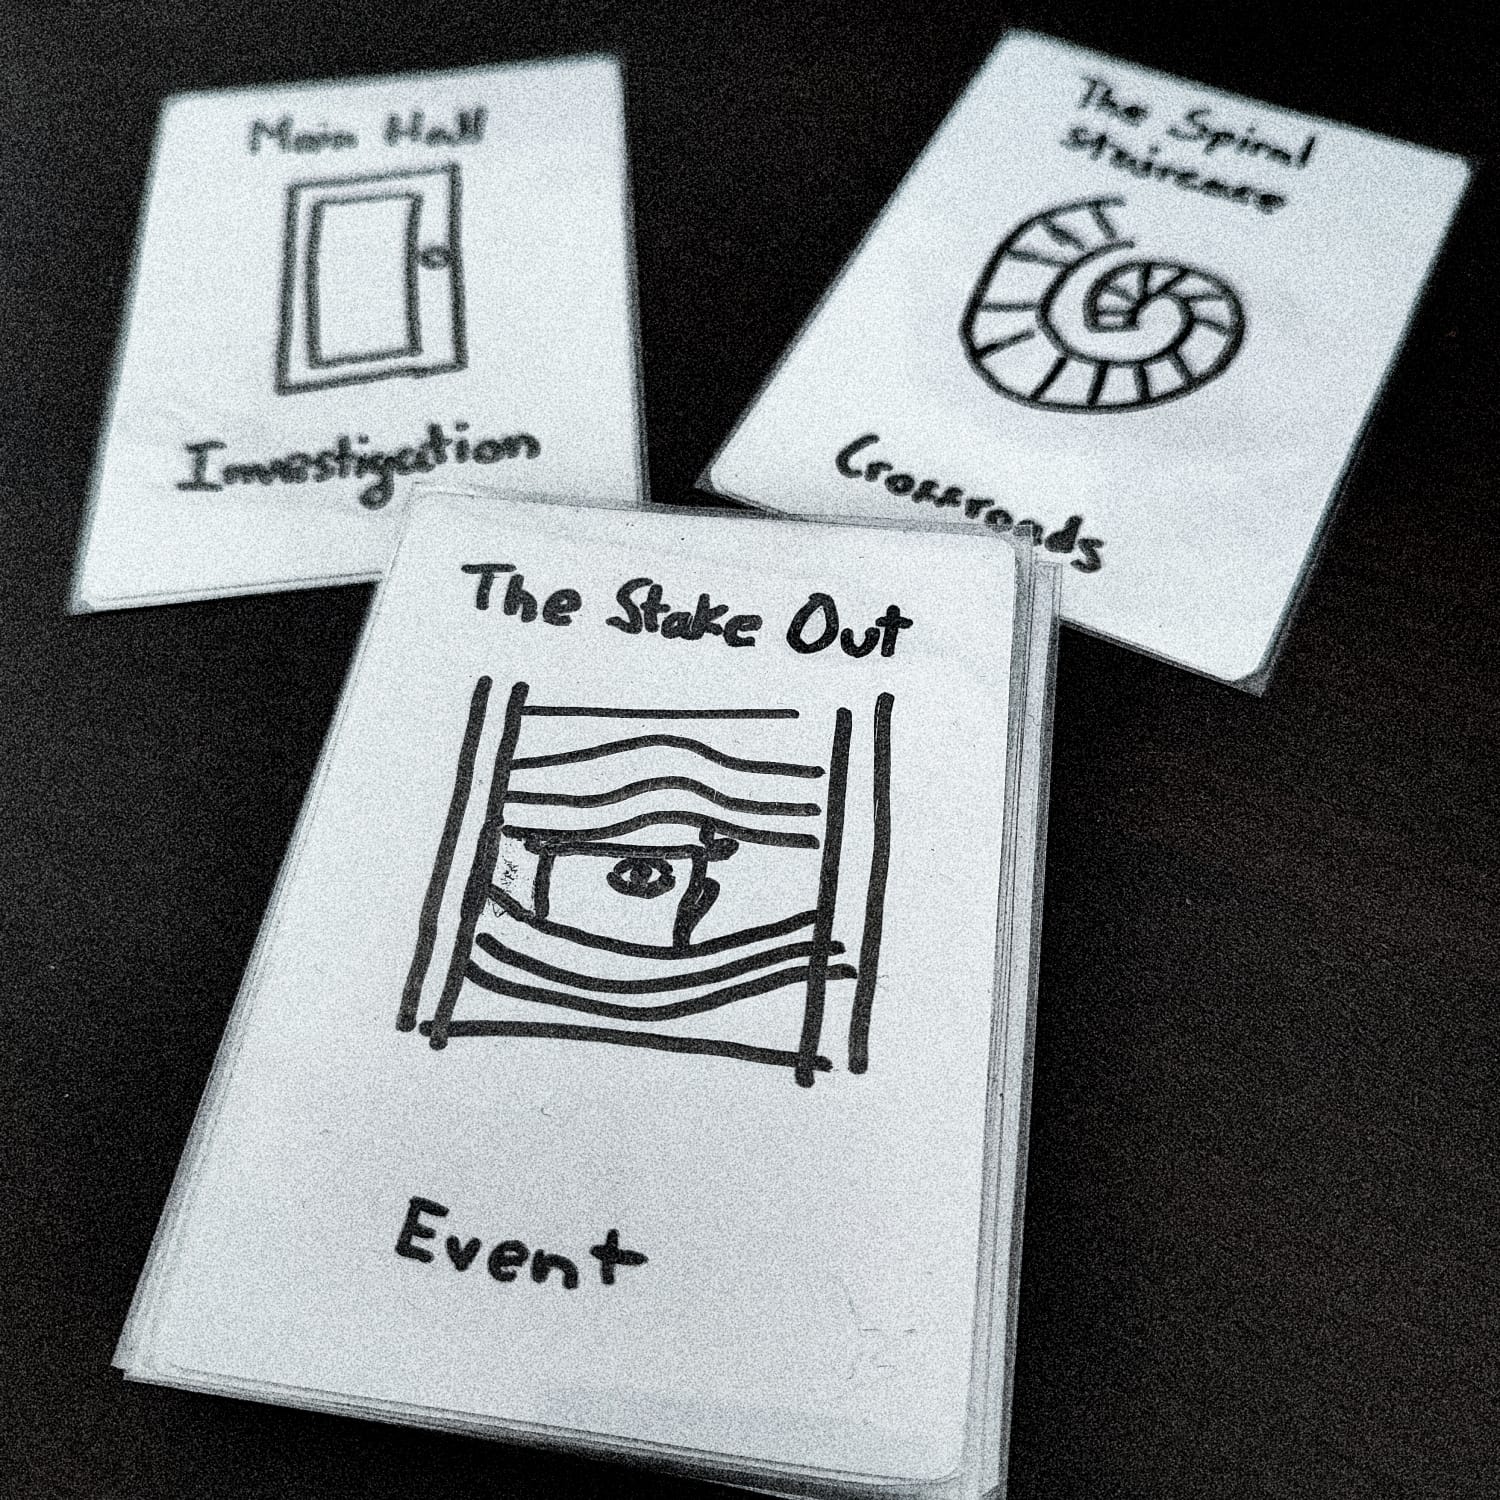 Main Hall
Investigation
The Spiral
Staircase
Crossroads
The Stake Out
Event